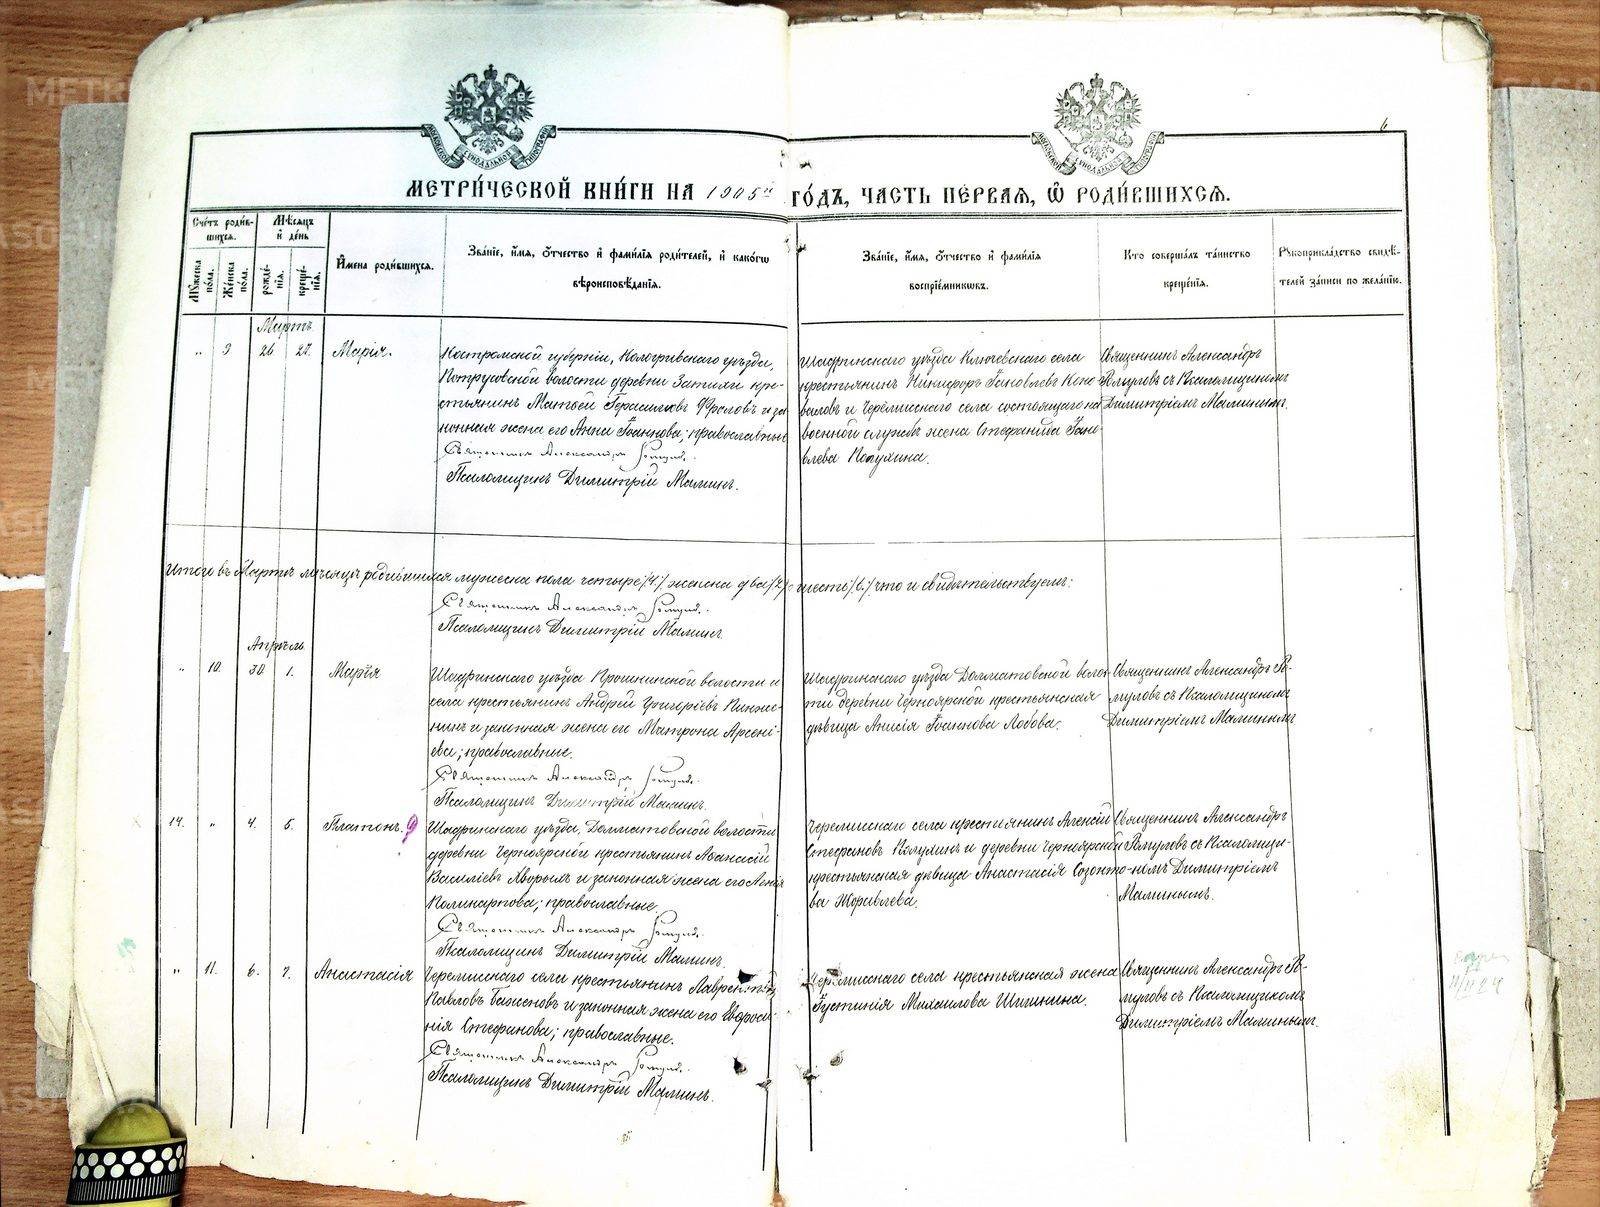 6
МЕТРИ́ЧЕСКОЙ КНИ́ГИ НА 1905й ГО́ДЪ, ЧАСТЬ ПЕ́РВАЯ, Ѡ РОДИ́ВШИХСЯ.
Сче́тъ роди́в-
шихся.
Мѣ́сяцъ
и де́нь
Му́жеска по́ла.
Же́нска по́ла.
рожде́-
нія.
креще́-
нія.
И́мена роди́вшихся.
Зва́ніе, и́мя, о́тчество и фами́лія роди́телей, и како́гѡ
вѣроисповѣ́данія.
Зва́ніе, и́мя, о́тчество и фами́лія
воспріе́мниковъ.
Кто соверша́лъ та́инство
креще́нія.
Рукоприкла́дство свидѣ́-
телей за́писи по жела́нію.
Мартъ
" 3 26 27. Марія.
Костромской губерніи, Кологривскаго уѣзда,
волости деревни Затихи кре-
стьянинъ Матѳей Герасимовъ Фроловъ и за
конная жена его Анна Іоаннова; православные
Священникъ Александръ
Псаломщикъ Димитрій Малинъ.
Шадринскаго уѣзда Ключевскаго села
крестьянинъ Никифоръ Іаковлевъ Коно
валовъ и Черемисскаго села состоящаго на
военной службѣ жена Стефанида Іако
влева Копухина.
Священникъ Александръ
съ Псаломщикомъ
Димитріемъ Малинымъ.
Итого въ Мартѣ мѣсяцѣ родившихся мужеска пола четыре /4./ женска два /2/, шесть /6./ что и свидѣтельствуемъ:
Священникъ Александръ
Псаломщикъ Димитрій Малинъ.
Апрѣль.
" 10. 30. 1. Марія
Шадринскаго уѣзда волости и
села крестьянинъ Андрей Григоріевъ
и законная жена его Матрона Арсені-
ева; православные.
Священникъ Александръ
Псаломщикъ Димитрій Малинъ.
Шадринскаго уѣзда Долматовской волос
ти деревни Черноярской крестьянская
дѣвица Анисія Іоаннова Лобова.
Священникъ Александръ
съ Псаломщикомъ
Димитріемъ Малинымъ
14. " 4. 5. Платонъ.
Шадринскаго уѣзда, Долматовской волости
деревни Черноярской крестьянинъ Аѳанасій
Василіевъ и законная жена его
Поликарпова; православные.
Священникъ Александръ
Псаломщикъ Димитрій Малинъ.
Черемисскаго села крестьянинъ Алексій
Стефановъ Копухинъ и деревни Черноярской
крестьянская дѣвица Анастасія Созонто-
ва Журавлева.
Священникъ Александръ
съ Псаломщи-
комъ Димитріемъ
Малинымъ.
" 11. 6. 7. Анастасія
Черемисскаго села крестьянинъ Лаврентій
Павловъ Баженовъ и законная жена его Евфроси-
нія Стефанова; православные.
Священникъ Александръ
Псаломщикъ Димитрій Малинъ.
Черемисскаго села крестьянская жена
Іустинія Михаилова Шишкина.
Священникъ Александръ
съ Псаломщикомъ
Димитріемъ Малинымъ.